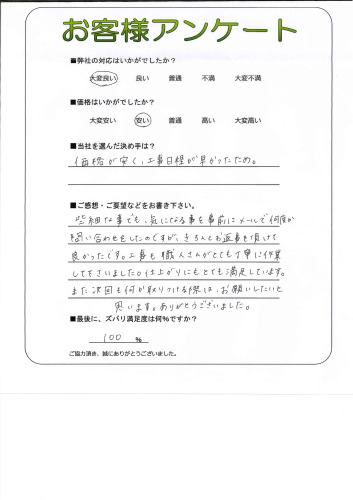 お客様アンケート
■弊社の対応はいかがでしたか？
大変良い 良い 普通 不満 大変不満
■価格はいかがでしたか？
大変安い 安い 普通 高い 大変高い
■当社を選んだ決め手は？
価格が安く、工事日程が早かったため。
■ご感想・ご要望などをお書き下さい。
些細な事でも、気になる事を事前にメールで何度か
問い合わせをしたのですが、きちんとお返事を頂けて
良かったです。工事も職人さんがとても丁寧に作業
して下さいました。仕上がりにもとても満足しています。
また次回も何か取り付ける際は、お願いしたいと
思います。ありがとうございました。
■最後に、ズバリ満足度は何%ですか？
100 %
ご協力頂き、誠にありがとうございました。